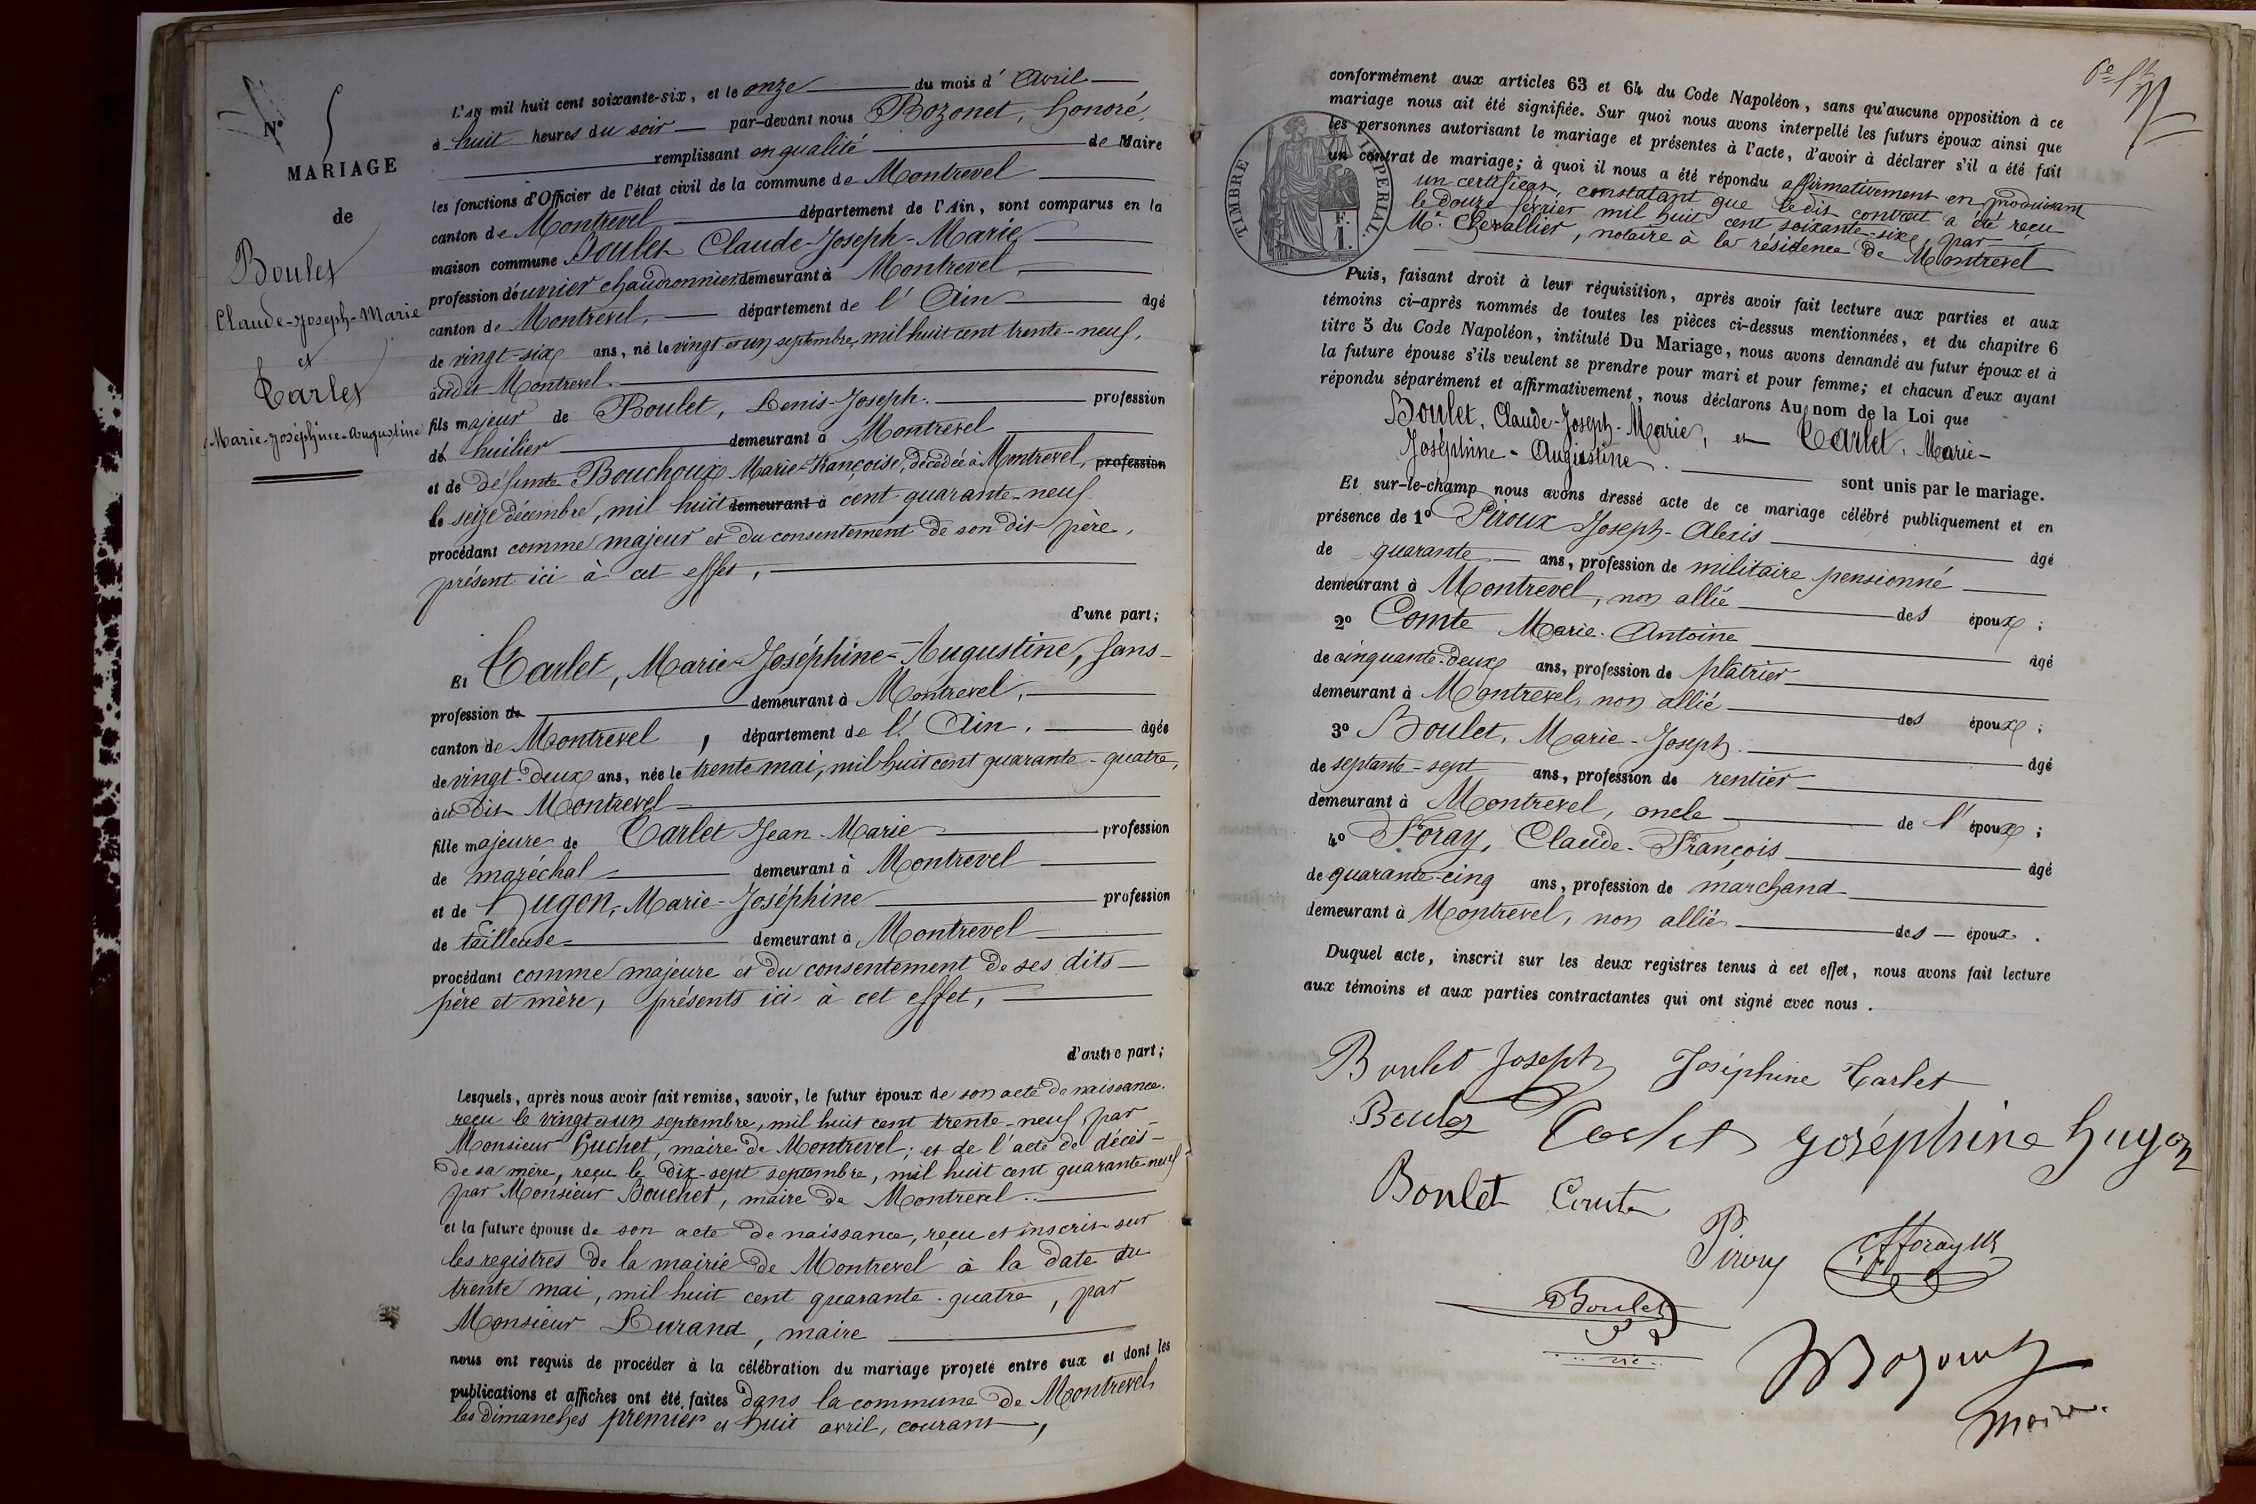 N° 5
MARIAGE
de
Boulet
Claude-Joseph-Marie
et
Carlet
Marie-Joséphine-Augustine
L'AN mil huit cent soixante-six, et le onze du mois d' Avril
à huit heures du soir par-devant nous Bozonet, honoré,
remplissant en qualité de Maire
les fonctions d'Officier de l'état civil de la commune de Montrevel
canton de Montrevel département de l'Ain, sont comparus en la
maison commune Boulet Claude-Joseph-Marie
profession d'ouvrier chaudronnier demeurant à Montrevel
canton de Montrevel, département de l' Ain âgé
de vingt-six ans, né le vingt et un septembre, mil huit cent trente-neuf,
audit Montrevel.
fils majeur de Boulet, Denis-Joseph. profession
de huilier demeurant à Montrevel
et de défunte Bouchoux Marie-Françoise, décédée à Montrevel, profession
le seize décembre, mil huit demeurant à cent quarante-neuf
procédant comme majeur et du consentement de son dit père,
présent ici à cet effet,
d'une part;
Et Carlet, Marie-Joséphine-Augustine, sans
profession de demeurant à Montrevel,
canton de Montrevel, département de l' Ain. âgée
de vingt-deux ans, née le trente mai, mil huit cent quarante-quatre,
au dit Montrevel
fille majeure de Carlet Jean-Marie profession
de maréchal demeurant à Montrevel
et de Hugon, Marie-Joséphine profession
de tailleuse demeurant à Montrevel
procédant comme majeure et du consentement de ses dits
père et mère, présents ici à cet effet,
d'autre part;
Lesquels, après nous avoir fait remise, savoir, le futur époux de son acte de naissance.
reçu le vingt et un septembre, mil huit cent trente-neuf, par
Monsieur Huchet, maire de Montrevel; et de l'acte de décès
de sa mère, reçu le dix-sept septembre, mil huit cent quarante-neuf
par Monsieur Bouchet, maire de Montrevel.
et la future épouse de son acte de naissance, reçu et inscrit sur
les registres de la mairie de Montrevel à la date du
trente mai, mil huit cent quarante-quatre, par
Monsieur Durand, maire
nous ont requis de procéder à la célébration du mariage projeté entre eux et dont les
publications et affiches ont été faites dans la commune de Montrevel,
les dimanches premier et huit avril, courant,
conformément aux articles 63 et 64 du Code Napoléon, sans qu'aucune opposition à ce
mariage nous ait été signifiée. Sur quoi nous avons interpellé les futurs époux ainsi que
les personnes autorisant le mariage et présentes à l'acte, d'avoir à déclarer s'il a été fait
un contrat de mariage; à quoi il nous a été répondu affirmativement en produisant
un certificat, constatant que le dit contrat a été reçu
le douze février mil huit cent soixante-six, par
Mr. Chevallier, notaire à la résidence de Montrevel
TIMBRE IMPERIAL
F.
1.
Puis, faisant droit à leur réquisition, après avoir fait lecture aux parties et aux
témoins ci-après nommés de toutes les pièces ci-dessus mentionnées, et du chapitre 6
titre 5 du Code Napoléon, intitulé Du Mariage, nous avons demandé au futur époux et à
la future épouse s'ils veulent se prendre pour mari et pour femme; et chacun d'eux ayant
répondu séparément et affirmativement, nous déclarons Au nom de la Loi que
Boulet, Claude-Joseph-Marie, et Carlet, Marie-
Joséphine-Augustine.
sont unis par le mariage.
Et sur-le-champ nous avons dressé acte de ce mariage célébré publiquement et en
présence de 1° Piroux Joseph-Alexis
âgé
de quarante ans, profession de militaire pensionné
demeurant à Montrevel, non allié des époux;
2° Comte Marie-Antoine
âgé
de cinquante-deux ans, profession de plâtrier
demeurant à Montrevel, non allié des époux;
3° Boulet, Marie-Joseph.
âgé
de septante-sept ans, profession de rentier
demeurant à Montrevel, oncle de l'époux;
4° Foray, Claude-François
âgé
de quarante-cinq ans, profession de marchand
demeurant à Montrevel, non allié des époux.
Duquel acte, inscrit sur les deux registres tenus à cet effet, nous avons fait lecture
aux témoins et aux parties contractantes qui ont signé avec nous.
Boulet Joseph Joséphine Carlet
Boulet Carlet Joséphine hugon
Boulet Comte
Piroux
Boulet
Bozonet
Maire.